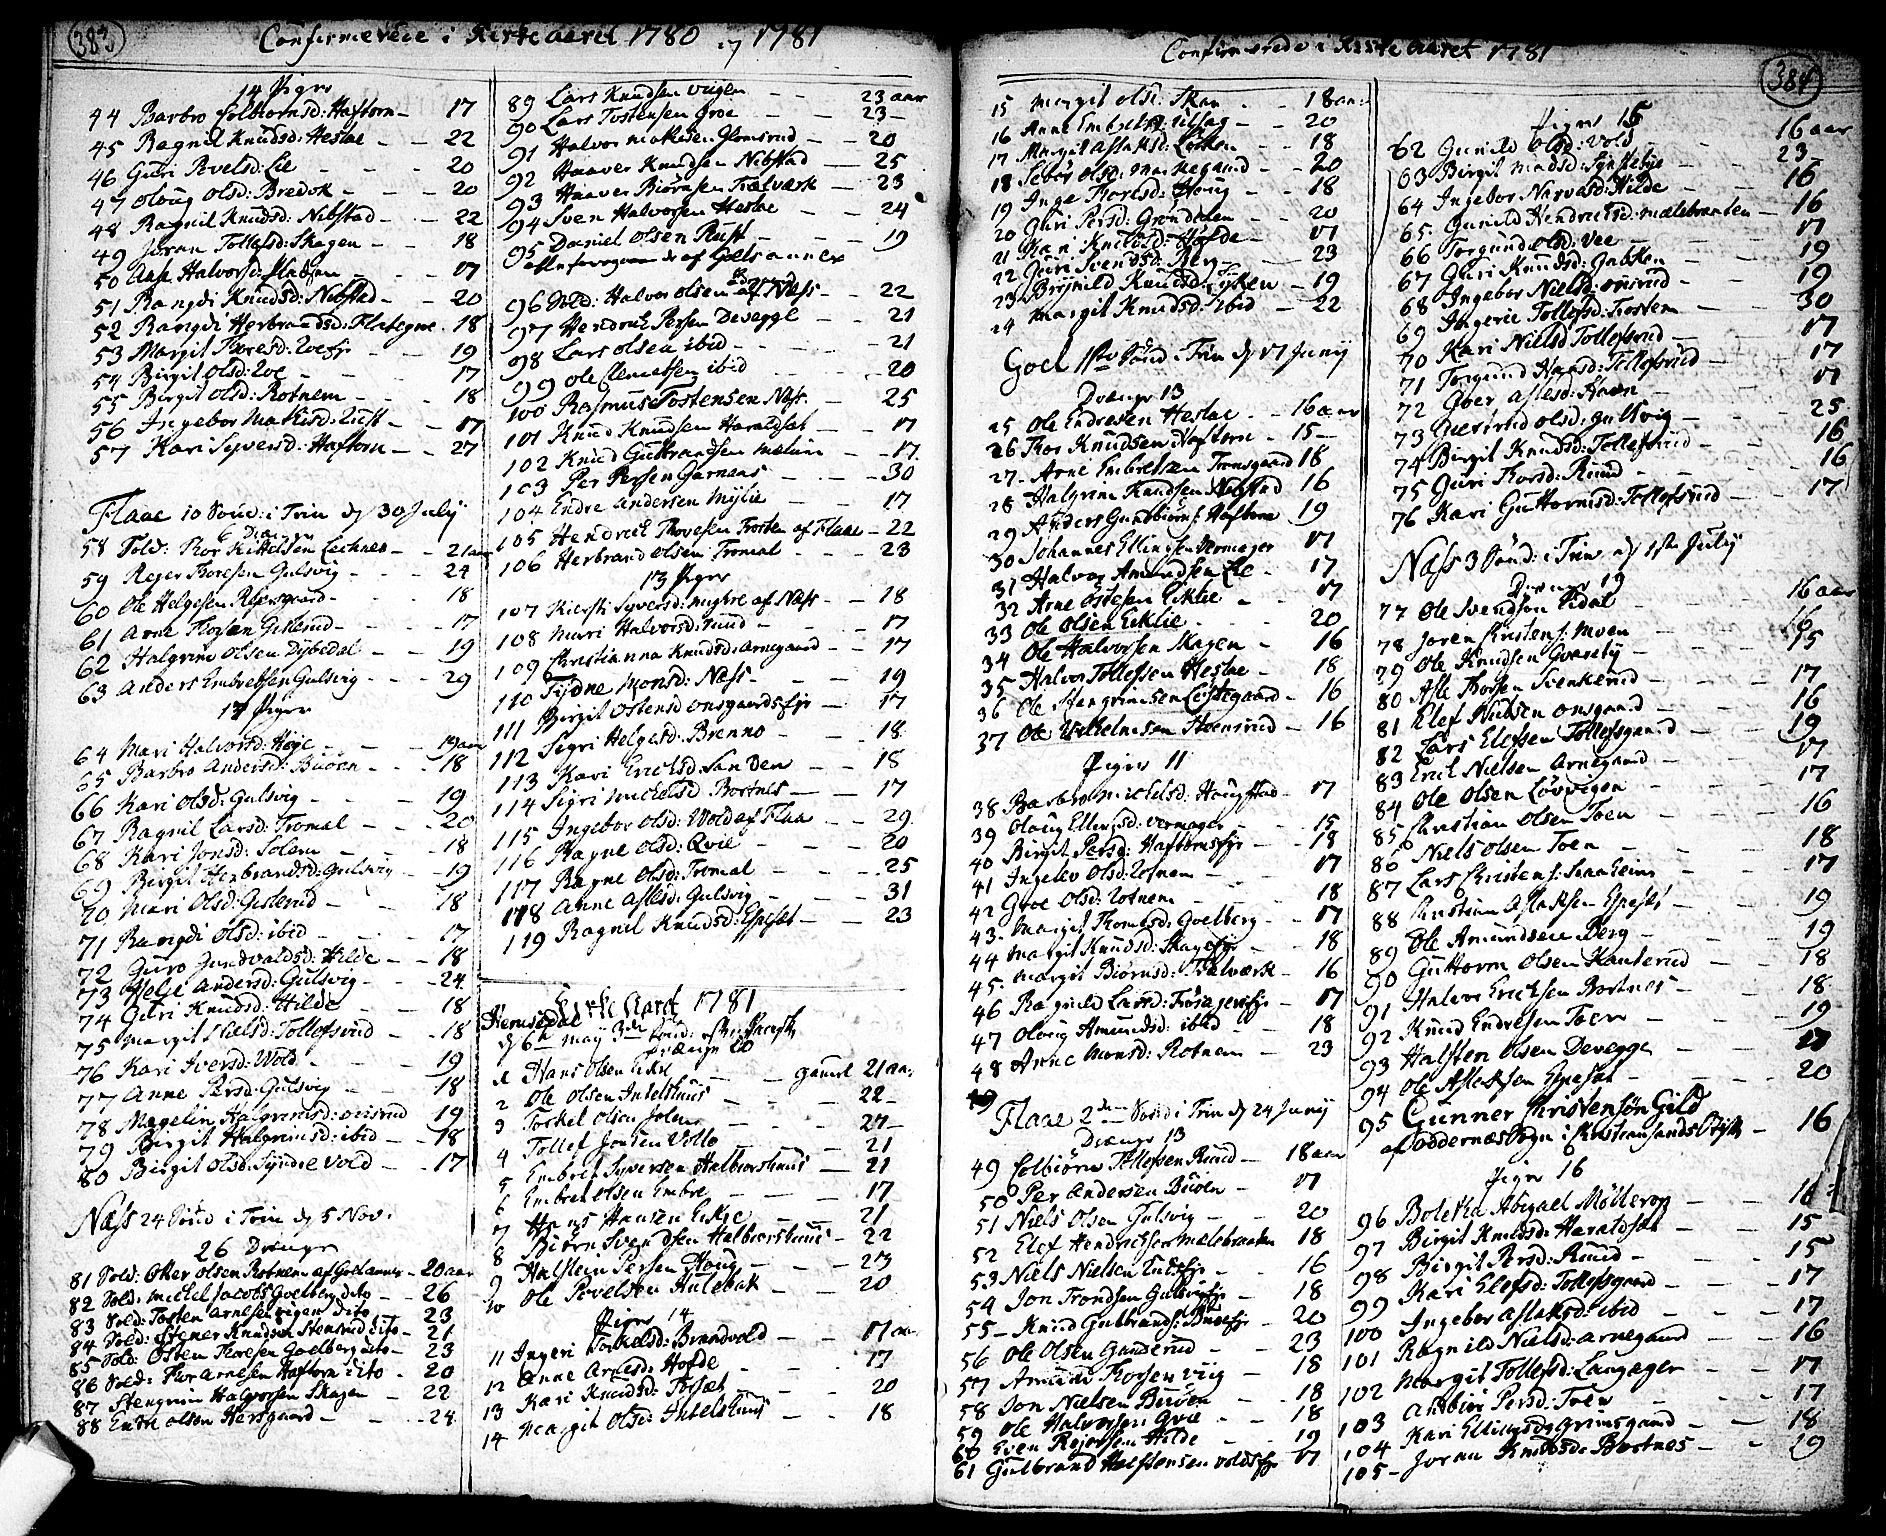 383
Confirmerede i Kirke aaret 1780 og 1781
14 Piger
44 Barbro Colbiornsd: Haftorn - 17
45 Ragnil Knudsd: Heslae - - 22
46 Guri Povelsd: Lie - - - 20
47 Oloug Olsd: Bredok - - - 20
48 Ragnil Knudsd: Nibstad - - 22
49 Joran Tollefsd: Skagen - - 18
50 Ann Halvorsd: - - - 17
51 Rangdi Knudsd: Nibstad - - 20
52 Rangdi Herbrandsd: - 18
53 Margit Toresd: - - 19
54 Birgit Olsd: Loe - - 17
55 Birgit Olsd: Rotnem - - 18
56 Ingebor Mathisd: - - 17
57 Kari Syversd: Haftorn - - 27
Flaae 10 Sønd: i Trin dj 30 July
6 Drænge
58 Sold: Thor Kittelsen - - 21 aar
59 Reier Thoresen Gulsvig - - - 24
60 Ole Helgesen - - - 18
61 Arne Thorsen Gislerud - - - 17
62 Halgrim Olsen Dybedal - - 19
63 Anders Embretsen Gulsvig - - - 29
17 Piger
64 Mari Halvorsd: Høje - - - 19 aar
65 Barbro Andersd: Buoen - - - 18
66 Kari Olsd: Gulsvig - - - 19
67 Ragnil Larsd: Tromal - - - 20
68 Kari Jonsd: Solem - - - 18
69 Birgit Herbrandsd: Gulsvig - - 19
70 Mari Olsd: Gislerud - - 18
71 Rangdi Olsd: ibid - - - 17
72 Guro Gundvaldsd: Hilde - - 18
73 Helje Andersd: Gulsvig - - - 24
74 Guri Knudsd: Hilde - - - 18
75 Margit Nielsd: Tollefsrud - - 18
76 Kari Iversd: Wold - - - 19
77 Anne Persd: Gulsvig - - - 18
78 Magelin Halgrimsd: 19
79 Birgit Halgrimsd: ibid - - 18
80 Birgit Olsd: Søndre Vold - - - 17
Næss 24 Sønd i Trin dj 5 Nov:
26 Drænge
81 Sold: Oller Olsen Rotnem af Goels annex - 20 aar
82 Sold: Michel Jacobs: Goelberg dito - - 26
83 Sold: Tosten Arnesen dito - - 23
84 Sold: Stener Knudsen Stensrud dito - 21
85 Sold: Osten Thoresen Goelberg dito - 23
86 Sold: Thor Arnesen Haftorn dito - 20
87 Stengrim Halvorsen Skagen - - 22
88 Endre Olsen Hersgaard - - - 24
89 Lars Knudsen - - 23 aar
90 Lars Tostensen Groe - - 23 -
91 Halvor Mathisen Glomsrud - - 20
92 Haaver Knudsen Nibstad - - 25
93 Haaver Biørnsen Trælværk - 23
94 Sven Halvorsen Heslae - - 24
95 Daniel Olsen Rust - - - 19
alle forregaaende af Goels annex
96 Sold: Halvor Olsen af Næss - - 22
97 Hendrich Persen Devegge - - 21
98 Lars Olsen ibid - - - 21
99 Ole Clemetsen ibid - - - 20
100 Rasmus Tostensen Næss - - 25
101 Knud Knudsen Haraldset - - 17
102 Knud Gulbrandsen - - 17
103 Per Persen Garnaas - - 30
104 Endre Andersen Mylie - - 17
105 Hendrich Thoresen Trosten af Flaae - 22
106 Herbrand Olsen Tromal - - 23
13 Piger
107 Kiersti Syversd: af Næss - - 18
108 Mari Halvorsd: Ruud - - - 17
109 Christianna Knudsd: Arnegaard - - 17
110 Tydne Monsd: Næss - - - 19
111 Birgit Ostensd onsgaardseje - 17
112 Sigri Helgesd: Brenno - - 18
113 Kari Erichsd: Sanden - - 18
114 Sigri Michelsd Bortnes - - 17
115 Ingebor Olsd: Wold af Flaa - - 29
116 Ragne Olsd: Qvie - - - 20
117 Ragne Olsd: Tromal - - - 25
118 Anne Aslesd: Gulsvig - - - 31
119 Ragnil Knudsd: Espeset - - 23
Kirke Aaret 1781
Hemsedal
dj 6te May 3die Sønd: efter Paaske
Drænge 10
1 Hans Olsen Eikre - - gamel 21 aar
2 Ole Olsen Intelshuus - - - 22 -
3 Torkel Olsen - - 27 -
4 Tollef Jonsen - - - 21
5 Embret Syversen Halbiørshuus - - 21
6 Embret Olsen Embre - - - 17
7 Hans Hansen Eikre - - - 21
8 Biørn Svendsen Halbiørshuus - - 22
9 Halstein Persen Houg - - - 23
10 Ole Povelsen Hulebak - - 20
Piger 14
11 Ingeri Torkelsd: Brandvold - - 17 aar
12 Anne Arnesd: Hofde - - - 17
13 Kari Knudsd: Torset - - - 20
14 Margit Olsd: Intelshuus - - 18
384
Confirmerede i Kirke Aaret 1781
15 Margit Olsd: Skau - - 18 aar
16 Anne Embretsd: - - 20
17 Margit Aslaksd: Løken - - 18
18 Olsd: Markegaard - 20
19 Inge Thoresd: Houg - - 18
20 Guri Persd: Grøndalen - - 20
21 Mari Knudsd: Hofde - - 17
22 Guri Svendsd: Berg - - 23
23 Knudsd: Lyken - 19
24 Margit Knudsd: ibid - 22
Goel 1ste Sønd: i Trin dj 17 Junij
Drænge 13
25 Ole Endresen Heslae - - 16 aar
26 Thor Knudsen Haftorn - 15 -
27 Arne Embretsen Tronsgaard 18
28 Halgrim Knudsen Nibstad 16
29 Anders Gunbiørns: Haftorn 19
30 Johannes Ellingsen Vermager 17
31 Halvor Amundsen Lie - 17
32 Arne Ostesen Eiklie - - 17
33 Ole Olsen Eiklie - - 20
34 Ole Halvorsen Skagen - 16
35 Halvor Tollefsen Heslae - 18
36 Ole Stengrimsen - 16
37 Ole Vilhelmsen Steensrud - - 16
Piger 11
38 Barbro Michelsd: Hougstad - 17
39 Oloug Ellingsd: Vermager - - 15
40 Birgit Persd: Haftornseje - - 18
41 Ingelev Olsd: Rotnem - - 17
42 Groe Olsd: Rotnem - - 18
43 Margit Thomesd: Goelberg - - 17
44 Margit Knudsd: Skageneje - - 18
45 Margit Biørnsd: Trælværk - 16
46 Ragnild Larsd: - 17
47 Oloug Amundsd: ibid - - 18
48 Anne Monsd: Rotnem - - 23
Flaae 2den Sønd i Trin dj 24 Junij
Drænge 13
49 Colbiørn Tollefsen Ruud - 18 aar
50 Per Andersen Buoen - 17
51 Niels Olsen Gulsvig - - 20
52 Elef Hendrichsen Mælebraaten 18
53 Niels Nielsen - 16
54 Jon Trondsen Gulsvigeje - 18
55 Knud Gulbrands: - 20
56 Ole Olsen Gandrud - - 23
57 Amund Thorsen - - 18
58 Jon Nielsen Buoen - - 18
59 Ole Halvorsen Qvie - - 18
60 Even Rejersen Hilde - - 19
61 Gulbrand Halstensen voldseje 17
Piger 15
62 Gunild Olsd: Vold - - 16 aar
63 Birgit Madsd: - - 23 -
64 Ingebor Narvesd: Hilde - - 16
65 Gunild Hendrichsd: Mælebraaten - 16
66 Torgund Olsd: Vee - - - 17
67 Guri Knudsd: - - 19
68 Ingebor Nielsd: - - 19
69 Ingerie Tollefsd: Trosten - - 30
70 Kari Nielsd Tollefsrud - - 17
71 Torgund Hansd: Tollefsrud - - 17
72 Aslesd: Haven - - 17
73 Olsd: Gulsvig - - 25
74 Birgit Knudsd: Tollefsrud - - 16
75 Guri Thorsd: Ruud - - - 16
76 Kari Guttormsd: Tollefsrud - - 17
Næss 3 Sønd: i Trin dj 1ste July
Drænge 19
77 Ole Svendsen Sidal - - 16 aar
78 Joren Christens: Moen - - 16
79 Ole Knudsen - - 15
80 Asle Thorsen Svenkerud - - 17
81 Elef Nielsen Onsgaard - - 16
82 Lars Elefsen Tollefsgaard - - 19
83 Erich Nielsen Arnegaard - - 17
84 Ole Olsen Løvvigen - - 17
85 Christian Olsen Toen - - 16
86 Niels Olsen Toen - - - 18
87 Lars Christens: - - 17
88 Christian Aslaksen Espeset - - 19
89 Ole Amundsen Berg - - - 19
90 Guttorm Olsen Kauterud - - 18
91 Halvor Erichsen Bortnes - - 18
92 Knud Endresen Toen - - 19
93 Halsten Olsen Devegge - - 17
94 Ole Aslaksen Espeset - - - 20
95 Gunner Christensøn Gild
af Oddernæs Sogn i Christiansands Stift - 16
Piger 16
96 Boletha Abigael Møllerop - - 16
97 Birgit Knudsd: Haraldset - - 15
98 Birgit Persd: Ruud - - - 15
99 Kari Elefsd: Tollefsgaard - - 17
100 Ingebor Aslaksd: ibid - - - 17
101 Ragnild Nielsd: Arnegaard - - 16
102 Margit Tollefsd: Langager - - 17
103 Anbiør Persd: Toen - - 17
104 Kari Ellingsd: Grimsgaard - - 18
105 Joran Knudsd: Bortnes - - 29